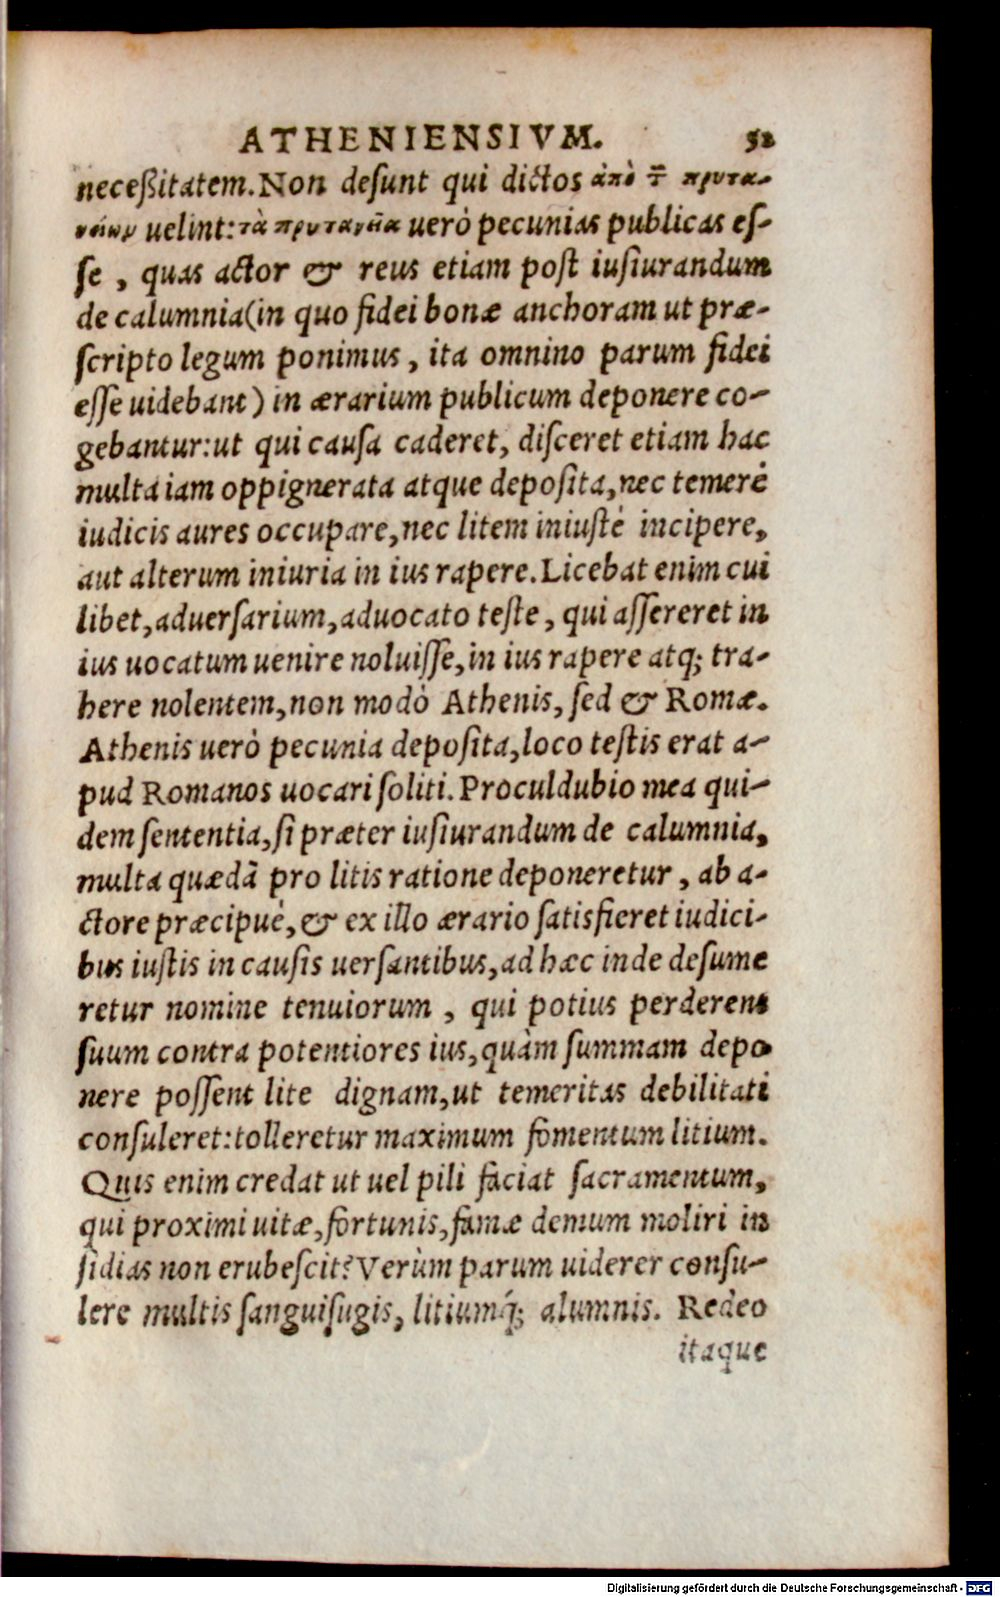 ATHENIENSIVM. 52
neceßitatem. Non desunt qui dictos ἀπὸ τ῀ πρυτα-
νείων uelint: τὰ πρυτανεῖα uerò pecunias publicas es-
se, quas actor & reus etiam post iusiurandum
de calumnia (in quo fidei bonæ anchoram ut præ-
scripto legum ponimus, ita omnino parum fidei
esse uidebant) in ærarium publicum deponere co-
gebantur: ut qui causa caderet, disceret etiam hac
multa iam oppignerata atque deposita, nec temerè
iudicis aures occupare, nec litem iniustè incipere,
aut alterum iniuria in ius rapere. Licebat enim cui
libet, aduersarium, aduocato teste, qui assereret in
ius uocatum uenire noluisse, in ius rapere atq; tra-
here nolentem, non modò Athenis, sed & Romæ.
Athenis uerò pecunia deposita, loco testis erat a-
pud Romanos uocari soliti. Proculdubio mea qui-
dem sententia, si præter iusiurandum de calumnia,
multa quædã pro litis ratione deponeretur, ab a-
ctore præcipuè, & ex illo ærario satisfieret iudici-
bus iustis in causis uersantibus, ad hæc inde desume
retur nomine tenuiorum, qui potius perderent
suum contra potentiores ius, quàm summam depo
nere possent lite dignam, ut temeritas debilitati
consuleret: tolleretur maximum fomentum litium.
Quis enim credat ut uel pili faciat sacramentum,
qui proximi uitæ, fortunis, famæ demum moliri in
sidias non erubescit? Verùm parum uiderer consu-
lere multis sanguisugis, litiumq́; alumnis. Redeo
itaque
Digitalisierung gefördert durch die Deutsche Forschungsgemeinschaft - DFG